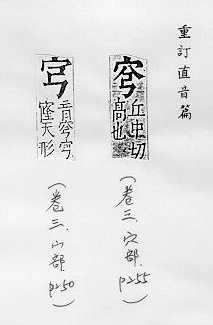 重訂直音篇
穹 丘中切
高也
(卷三.穴部.p255)
宆 音穹穹
窿天形
(卷三.宀部.p250)